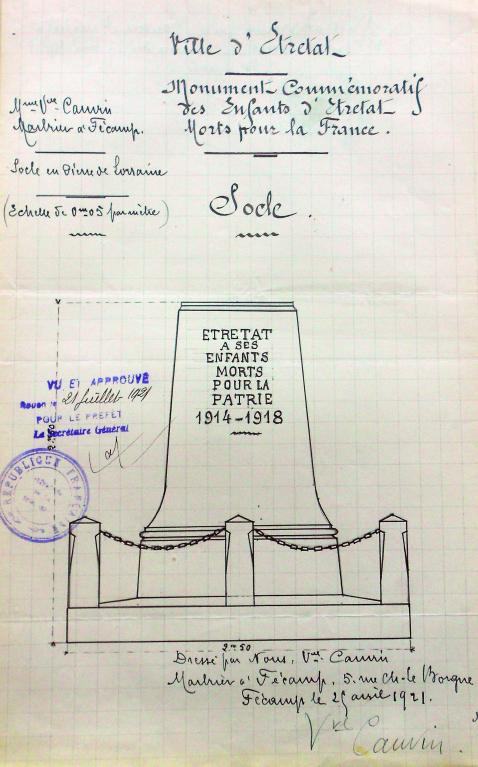 Ville d'Etretat
Monument Commémoratif
des Enfants d'Etretat
Morts pour la France.
Mme Vve Cauvin
Marbrier à Fécamp.
Socle en Pierre de Lorraine
(Echelle de 0m05 par mètre)
Socle.
ETRETAT
A SES
ENFANTS
MORTS
POUR LA
PATRIE
1914-1918
VU ET APPROUVÉ
Rouen le 21 Juillet 1921
POUR LE PRÉFET
Le Secrétaire Général
RÉPUBLIQUE FRANÇAISE
2m50
Dressé par Nous, Vve Cauvin
Marbrier à Fécamp, 5, rue Ch. le Borgne
Fécamp le 25 avril 1921.
Vve Cauvin.